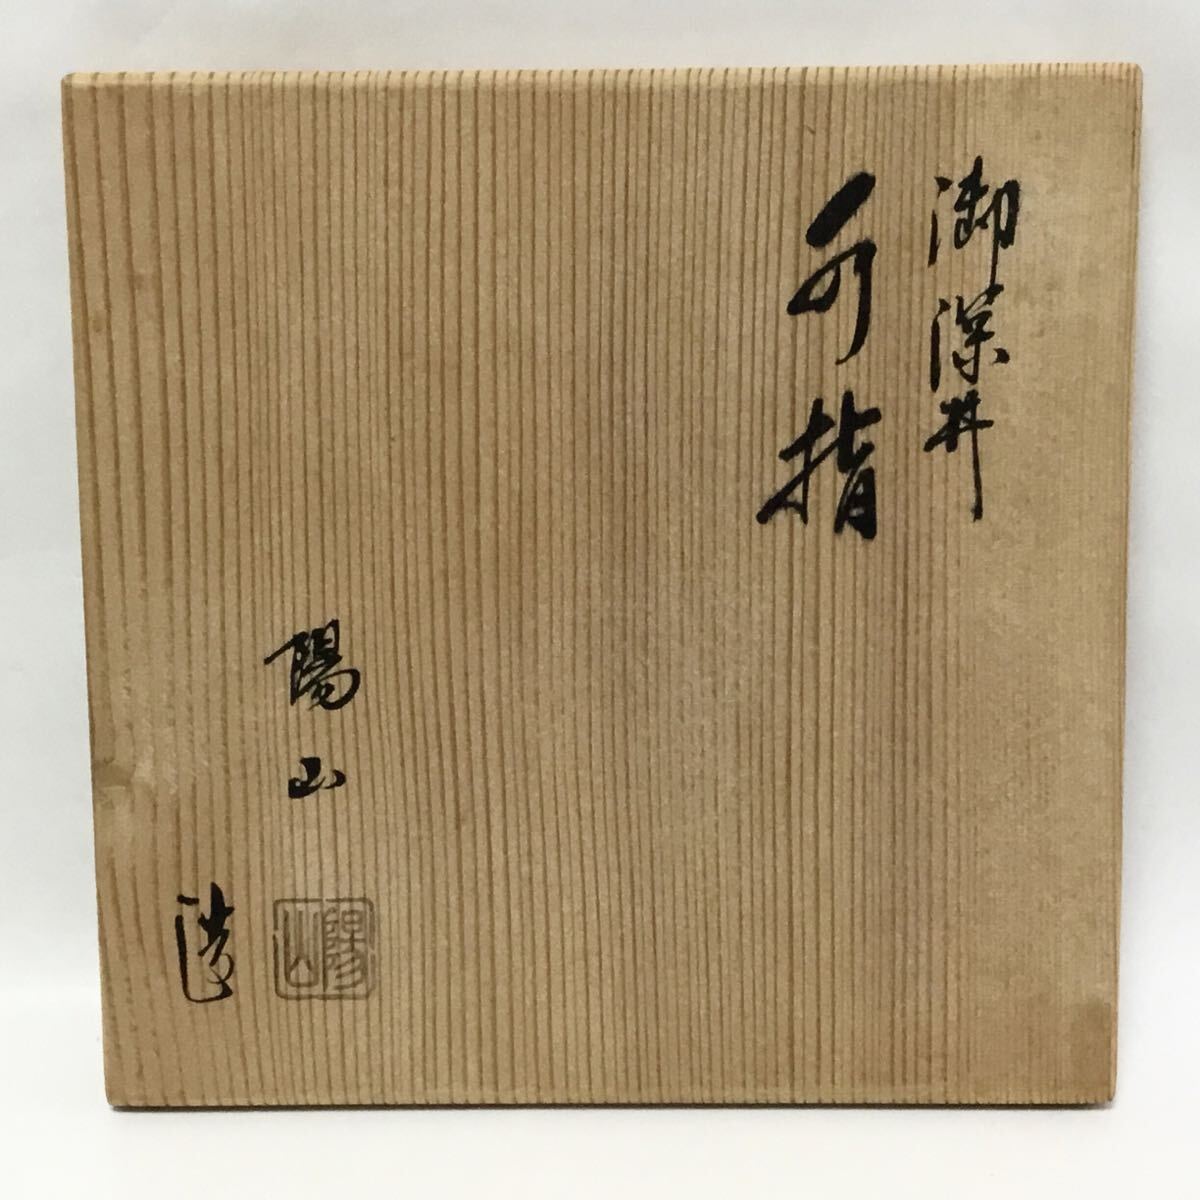 御深井
水指
陽山
造
陽山